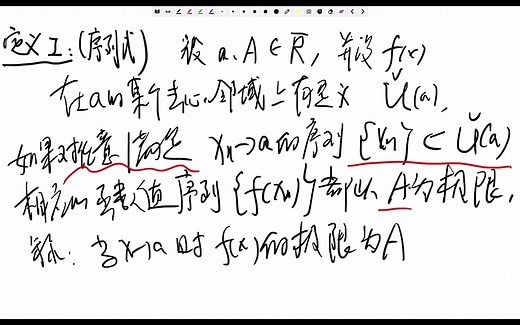 定义I:(序列式) 设 a.A∈R̅, 并设 f(x)
在a的某个去心邻域上有定义 Ǔ(a),
如果对任意满足 xₙ→a的序列{xₙ}⊂Ǔ(a)
相应的函数值序列{f(xₙ)}都以A为极限,
称: 当x→a时 f(x)的极限为A